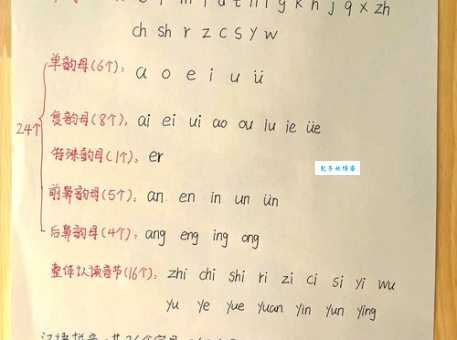 t n l g k h j q x zh
ch sh r z c s y w
单韵母(6个): a o e i u ü
24个
复韵母(8个): ai ei ui ao ou iu ie üe
特殊韵母(1个): er
前鼻韵母(5个): an en in un ün
后鼻韵母(4个): ang eng ing ong
整体认读音节(16个): zhi chi shi ri zi ci si yi wu
yu ye yue yuan yin yun ying